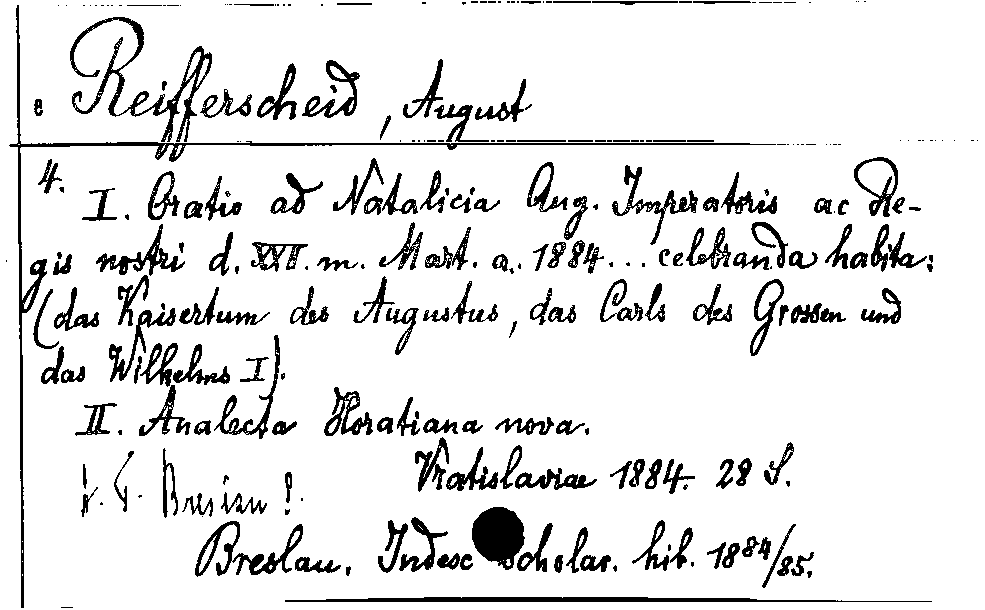 e Reifferscheid, August
4. I. Oratio ad Natalicia Aug. Imperatoris ac Re-
gis nostri d. XXII. m. Mart. a. 1884... celebranda habita:
(das Kaisertum des Augustus, das Carls des Grossen und
das Wilhelms I).
II. Analecta Horatiana nova.
Vratislaviae 1884. 28 S.
Breslau. Index Scholar. hib. 1884/85.